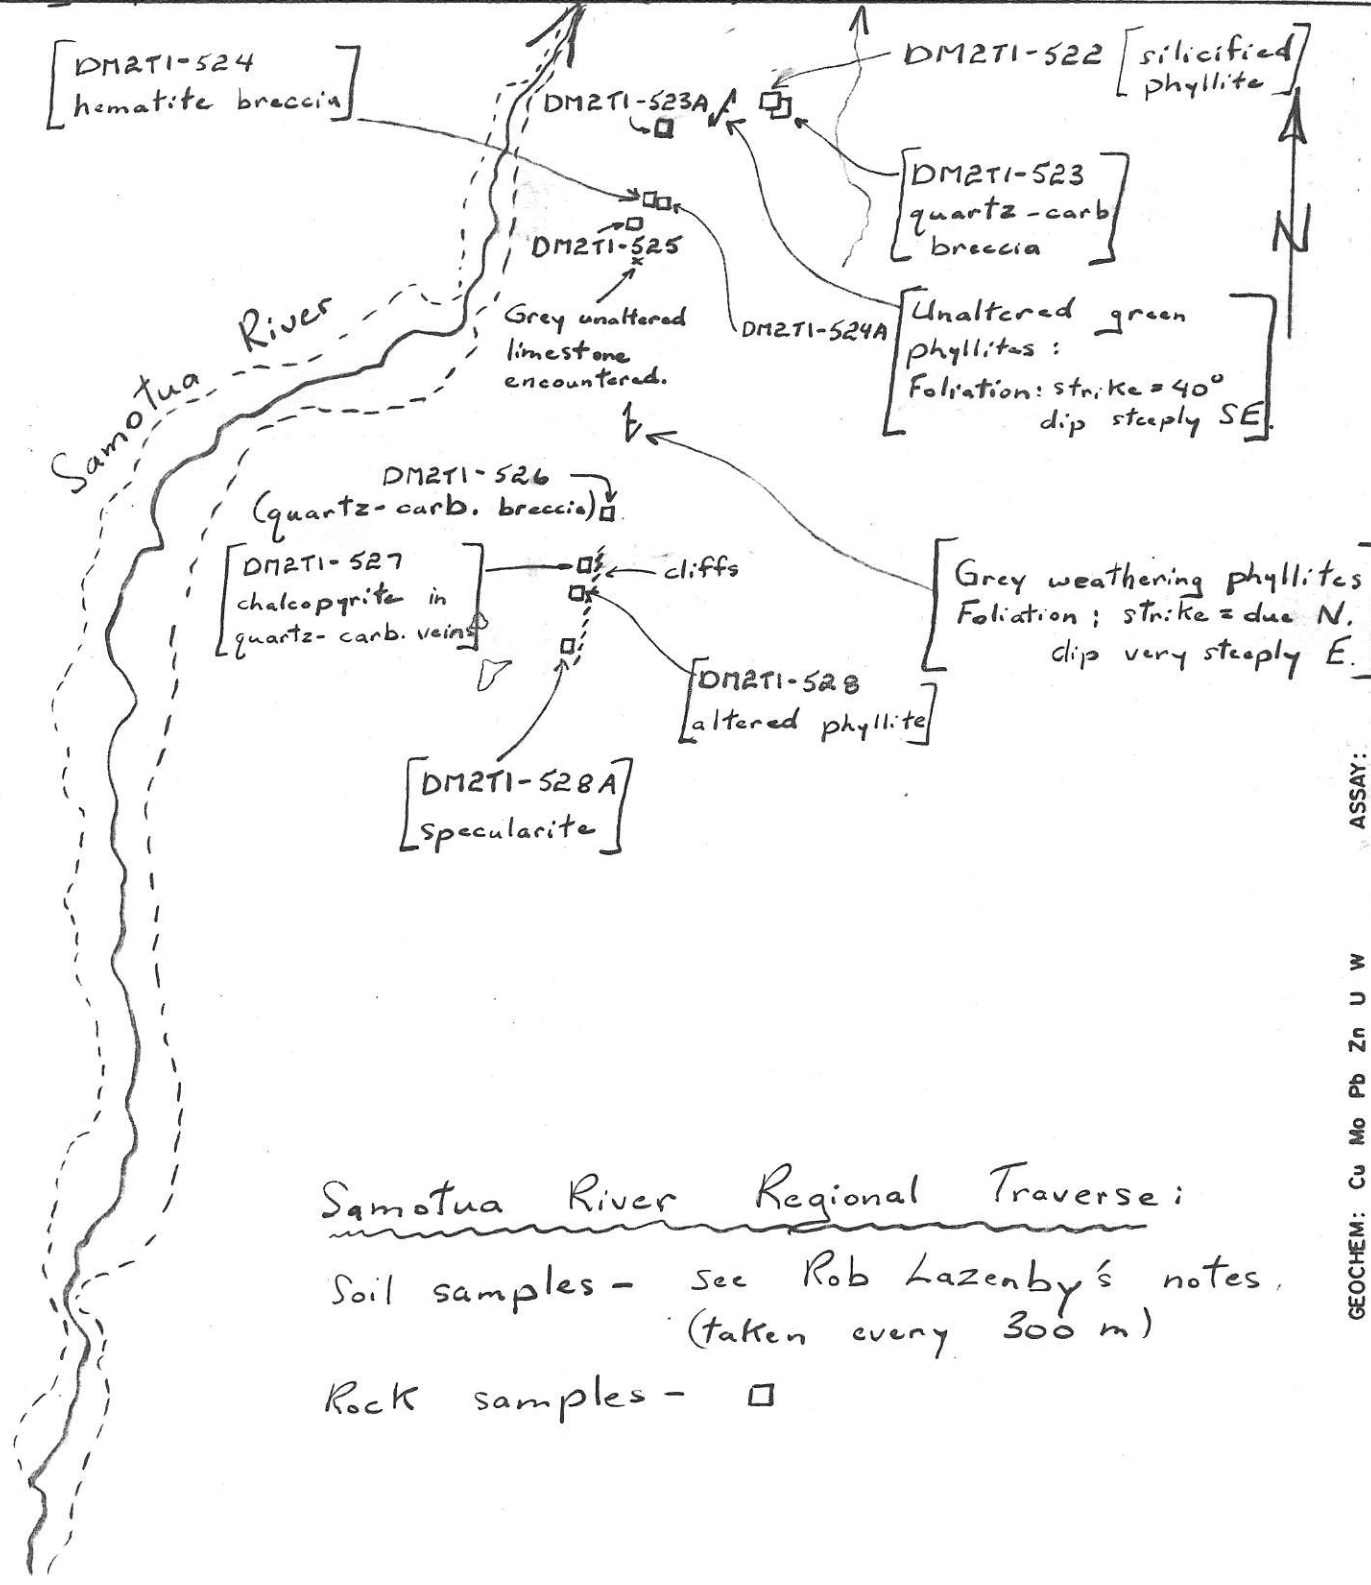 DM2T1-524
hematite breccia
DM2T1-523A
DM2T1-522 [silicified
phyllite]
DM2T1-523
quartz-carb
breccia
N
DM2T1-525
Grey unaltered
limestone
encountered.
DM2T1-524A
Unaltered green
phyllites:
Foliation: strike = 40°
dip steeply SE.
Samotua River
DM2T1-526
(quartz-carb. breccia)
DM2T1-527
chalcopyrite in
quartz-carb. veins
cliffs
Grey weathering phyllites
Foliation; strike = due N.
dip very steeply E.
DM2T1-528
altered phyllite
DM2T1-528A
specularite
ASSAY:
GEOCHEM: Cu Mo Pb Zn U W
Samotua River Regional Traverse:
Soil samples - see Rob Lazenby's notes.
(taken every 300 m)
Rock samples - □